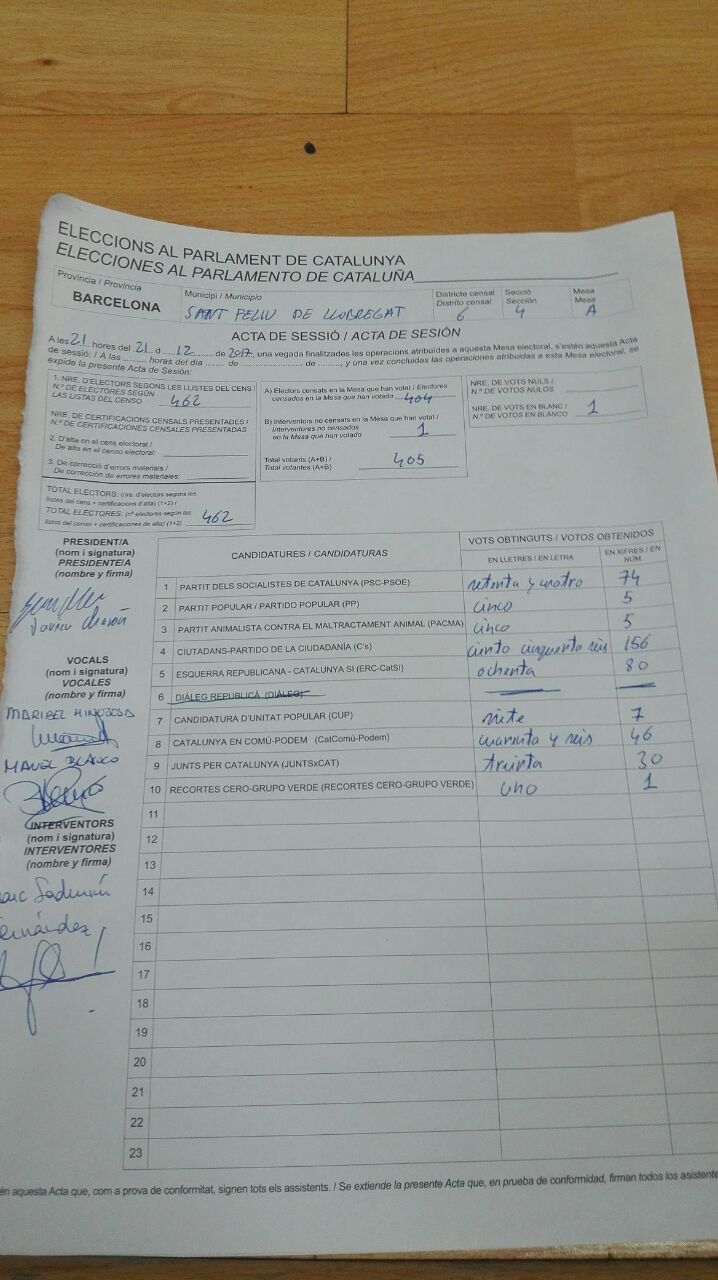 ELECCIONS AL PARLAMENT DE CATALUNYA
ELECCIONES AL PARLAMENTO DE CATALUÑA
Província / Provincia
BARCELONA
Municipi / Municipio
SANT FELIU DE LLOBREGAT
Districte censal
Distrito censal
6
Secció
Sección
4
Mesa
Mesa
A
ACTA DE SESSIÓ / ACTA DE SESIÓN
A les 21 hores del 21 d 12 de 2017, una vegada finalitzades les operacions atribuïdes a aquesta Mesa electoral, s'estén aquesta Acta
de sessió: / A las ......... horas del día ......... de ......... de ........., y una vez concluidas las operaciones atribuidas a esta Mesa electoral, se
expide la presente Acta de Sesión:
1. NRE. D'ELECTORS SEGONS LES LLISTES DEL CENS /
N.º DE ELECTORES SEGÚN
LAS LISTAS DEL CENSO 462
NRE. DE CERTIFICACIONS CENSALS PRESENTADES /
N.º DE CERTIFICACIONES CENSALES PRESENTADAS
2. D'alta en el cens electoral /
De alta en el censo electoral:
3. De correcció d'errors materials /
De corrección de errores materiales:
TOTAL ELECTORS: (nre. d'electors segons les
llistes del cens + certificacions d'alta) (1+2) /
TOTAL ELECTORES: (nº electores según las
listas del censo + certificaciones de alta) (1+2) 462
A) Electors censats en la Mesa que han votat / Electores
censados en la Mesa que han votado 404
B) Interventors no censats en la Mesa que han votat /
Interventores no censados
en la Mesa que han votado 1
Total votants (A+B) /
Total votantes (A+B) 405
NRE. DE VOTS NULS /
N.º DE VOTOS NULOS
NRE. DE VOTS EN BLANC /
N.º DE VOTOS EN BLANCO 1
PRESIDENT/A
(nom i signatura)
PRESIDENTE/A
(nombre y firma)
VOCALS
(nom i signatura)
VOCALES
(nombre y firma)
MARIBEL HINOJOSA
MANUEL BLANCO
INTERVENTORS
(nom i signatura)
INTERVENTORES
(nombre y firma)
CANDIDATURES / CANDIDATURAS
VOTS OBTINGUTS / VOTOS OBTENIDOS
EN LLETRES / EN LETRA
EN XIFRES / EN NÚM.
1 PARTIT DELS SOCIALISTES DE CATALUNYA (PSC-PSOE) setenta y cuatro 74
2 PARTIT POPULAR / PARTIDO POPULAR (PP) cinco 5
3 PARTIT ANIMALISTA CONTRA EL MALTRACTAMENT ANIMAL (PACMA) cinco 5
4 CIUTADANS-PARTIDO DE LA CIUDADANÍA (C's) ciento cinquenta seis 156
5 ESQUERRA REPUBLICANA - CATALUNYA SÍ (ERC-CatSí) ochenta 80
6 DIÀLEG REPUBLICÀ (DIÀLEG)
7 CANDIDATURA D'UNITAT POPULAR (CUP) siete 7
8 CATALUNYA EN COMÚ-PODEM (CatComú-Podem) cuarenta y seis 46
9 JUNTS PER CATALUNYA (JUNTSxCAT) treinta 30
10 RECORTES CERO-GRUPO VERDE (RECORTES CERO-GRUPO VERDE) uno 1
11
12
13
14
15
16
17
18
19
20
21
22
23
én aquesta Acta que, com a prova de conformitat, signen tots els assistents. / Se extiende la presente Acta que, en prueba de conformidad, firman todos los asistente